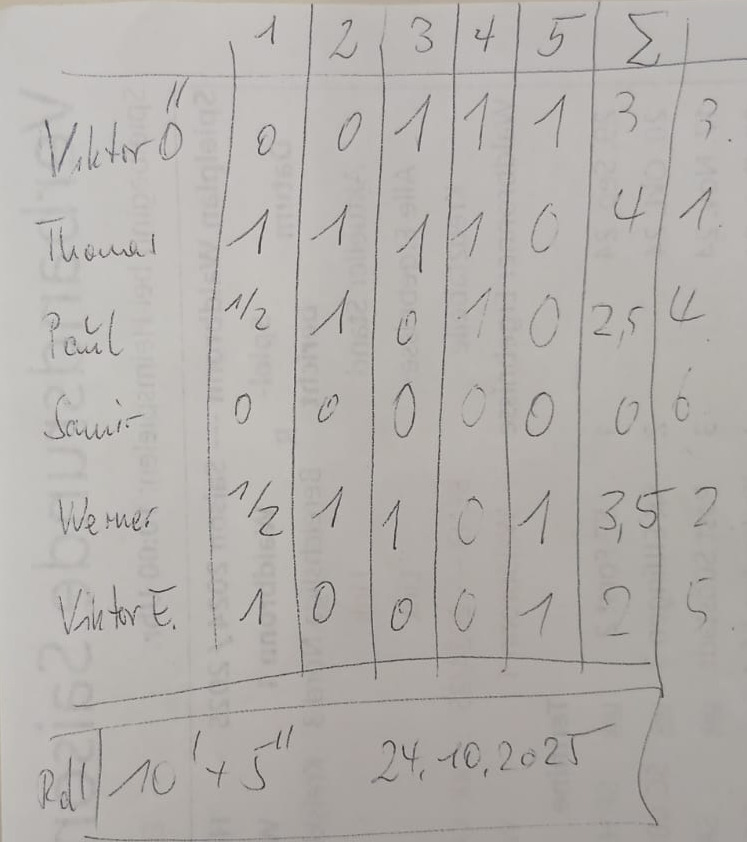 1 2 3 4 5 Σ
Viktor Ö 0 0 1 1 1 3 3.
Thomas 1 1 1 1 0 4 1.
Paul 1/2 1 0 1 0 2,5 4.
Samir 0 0 0 0 0 0 6
Werner 1/2 1 1 0 1 3,5 2
Viktor E. 1 0 0 0 1 2 5
Rdl 10' + 5" 24.10.2025